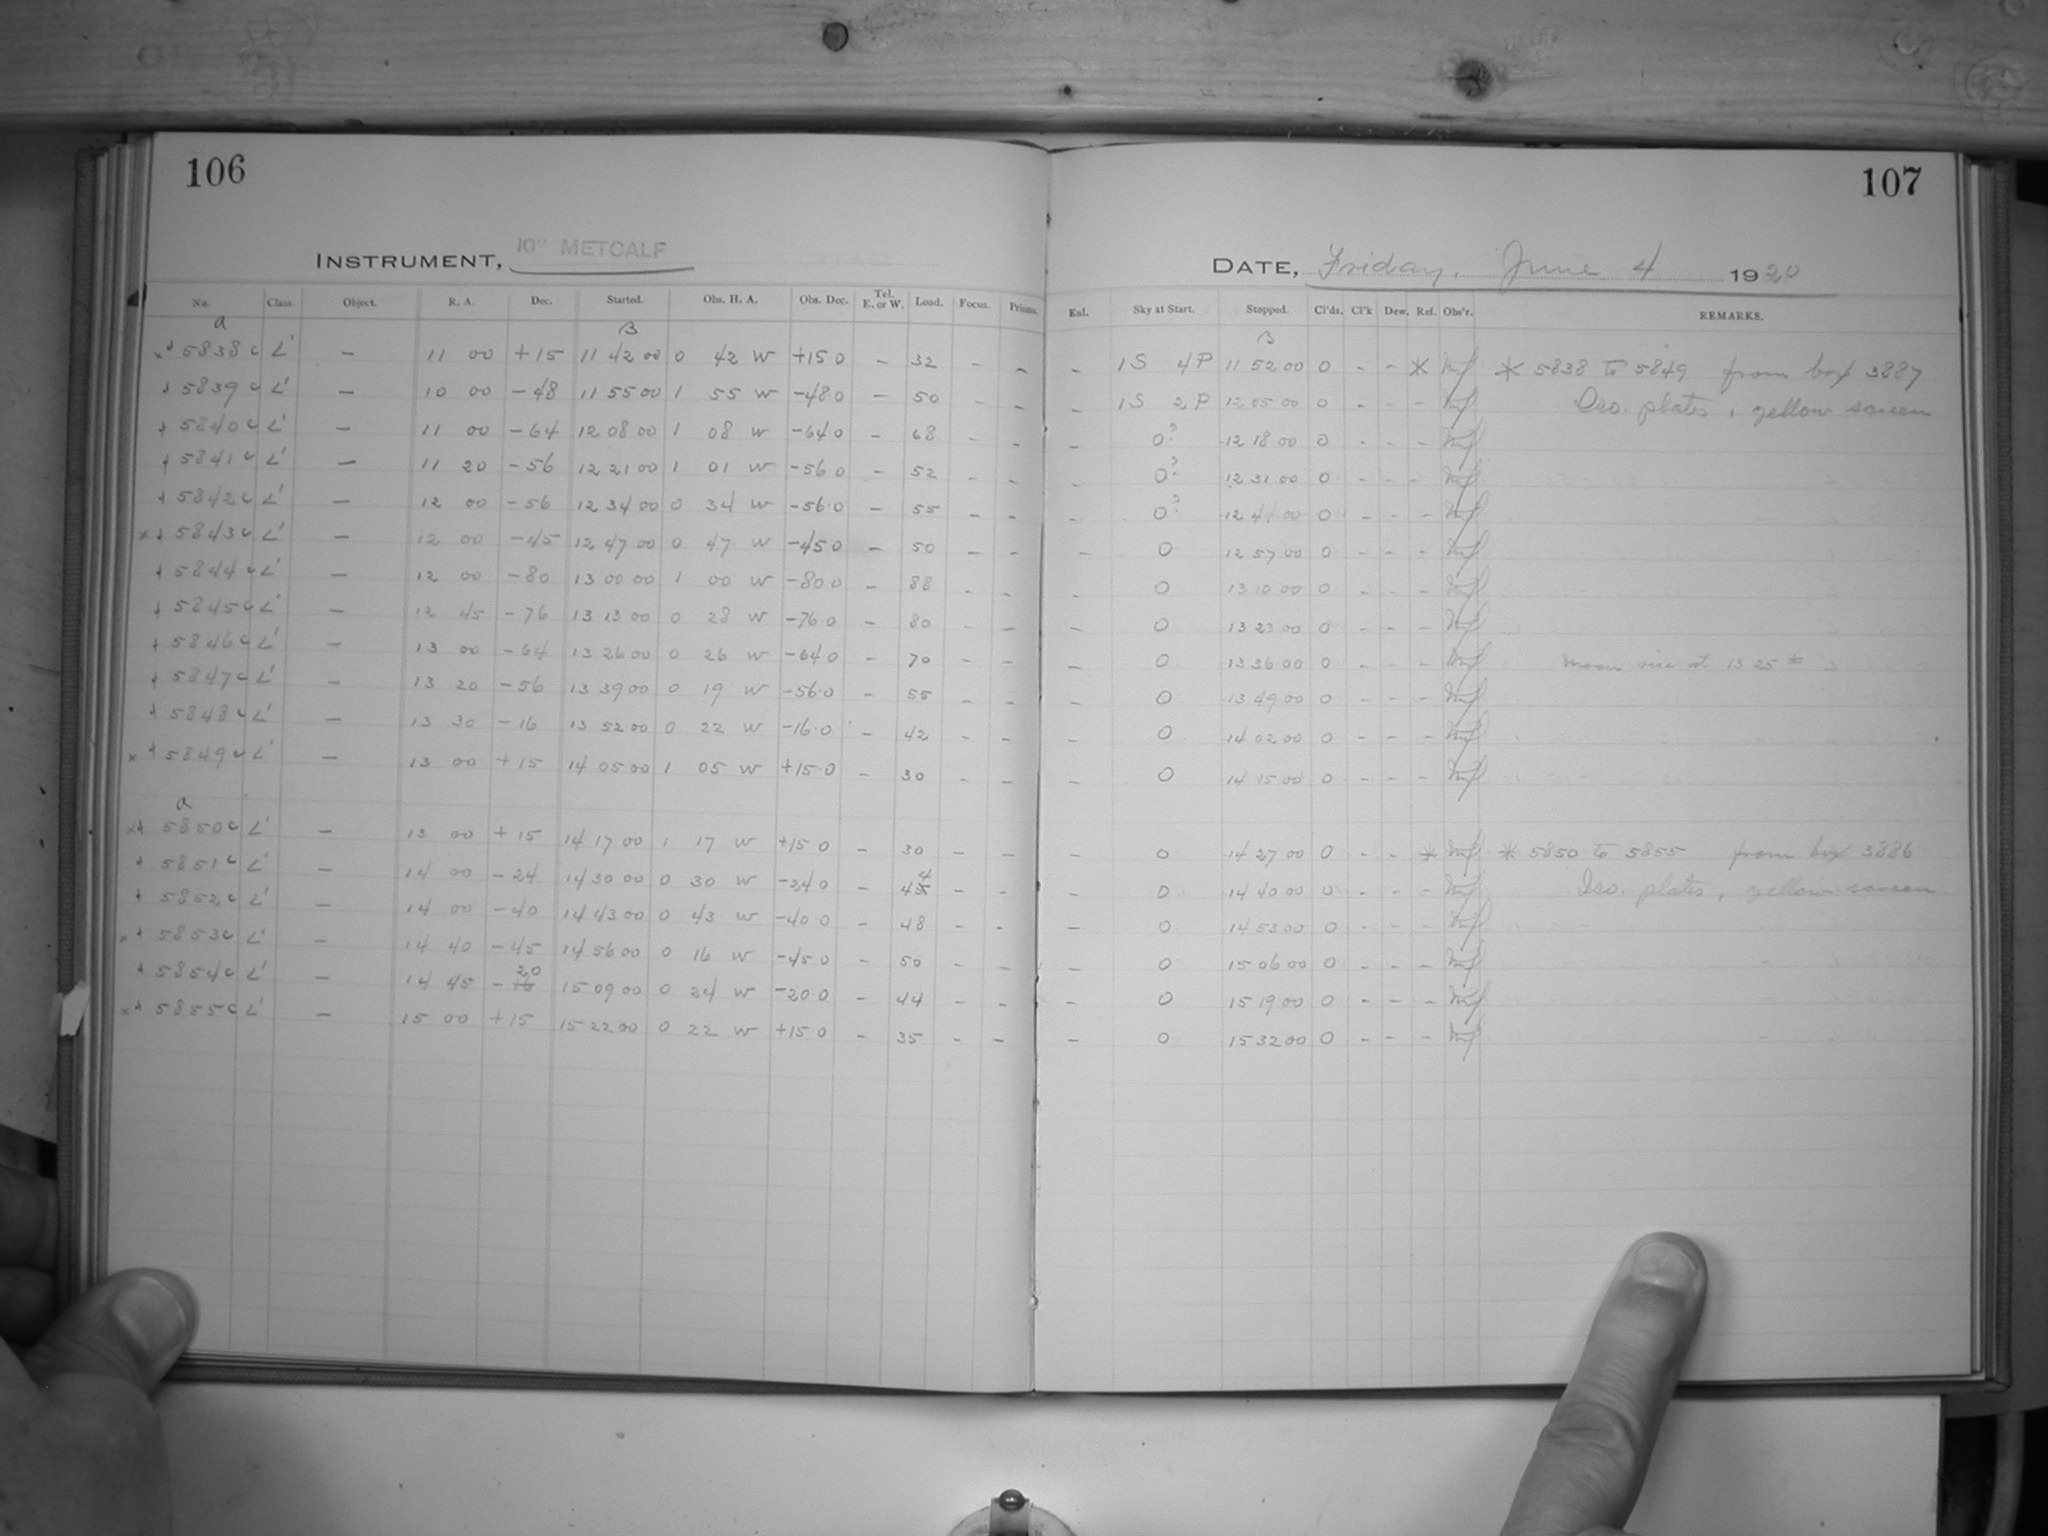 106
107
INSTRUMENT, 10" METCALF
DATE, Friday, June 4 1920
No. Class. Object. R. A. Dec. Started. Obs. H. A. Obs. Dec. Tel. E. or W. Load. Focus. Prisms. Enl. Sky at Start. Stopped. Cl'ds. Cl'k Dew. Ref. Obs'r. REMARKS.
a B B
x + 5838 c L' — 11 00 +15 11 42 00 0 42 W +15 0 – 32 – – – 1S 4P 11 52 00 0 - - * * 5838 to 5849 from box 3887
+ 5839 c L' — 10 00 -48 11 55 00 1 55 W -48 0 – 50 – – – 1S 2P 12 05 00 0 - - - Iso. plates, yellow screen
+ 5840 c L' — 11 00 -64 12 08 00 1 08 W -64 0 – 68 – – – 0? 12 18 00 0 - - -
+ 5841 c L' — 11 20 -56 12 21 00 1 01 W -56 0 – 52 – – – 0? 12 31 00 0 - - -
+ 5842 c L' — 12 00 -56 12 34 00 0 34 W -56.0 – 55 – – – 0? 12 44 00 0 - - -
x + 5843 c L' — 12 00 -45 12 47 00 0 47 W -45 0 – 50 – – – 0 12 57 00 0 - - -
+ 5844 c L' — 12 00 -80 13 00 00 1 00 W -80 0 – 88 – – – 0 13 10 00 0 - - -
+ 5845 c L' — 12 45 -76 13 13 00 0 28 W -76 0 – 80 – – – 0 13 23 00 0 - - -
+ 5846 c L' — 13 00 -64 13 26 00 0 26 W -64 0 – 70 – – – 0 13 36 00 0 - - - Moon rise at 13 25 ±
+ 5847 c L' — 13 20 -56 13 39 00 0 19 W -56.0 – 55 – – – 0 13 49 00 0 - - -
+ 5848 c L' — 13 30 -16 13 52 00 0 22 W -16.0 – 42 – – – 0 14 02 00 0 - - -
x + 5849 c L' — 13 00 +15 14 05 00 1 05 W +15.0 – 30 – – – 0 14 15 00 0 - - -
a
x + 5850 c L' — 13 00 +15 14 17 00 1 17 W +15 0 – 30 – – – 0 14 27 00 0 - - * * 5850 to 5855 from box 3886
+ 5851 c L' — 14 00 -24 14 30 00 0 30 W -24 0 – 44 – – – 0 14 40 00 0 - - - Iso. plates, yellow screen
+ 5852 c L' — 14 00 -40 14 43 00 0 43 W -40 0 – 48 – – – 0 14 53 00 0 - - -
x + 5853 c L' — 14 40 -45 14 56 00 0 16 W -45 0 – 50 – – – 0 15 06 00 0 - - -
+ 5854 c L' — 14 45 -20 15 09 00 0 24 W -20 0 – 44 – – – 0 15 19 00 0 - - -
x + 5855 c L' — 15 00 +15 15 22 00 0 22 W +15 0 – 35 – – – 0 15 32 00 0 - - -